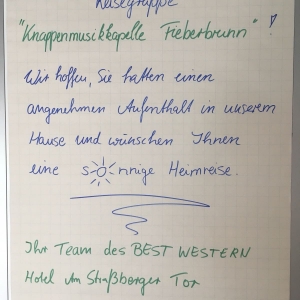 Reisegruppe
"Knappenmusikkapelle Fieberbrunn"!
Wir hoffen, Sie hatten einen
angenehmen Aufenthalt in unserem
Hause und wünschen Ihnen
eine sonnige Heimreise.
Ihr Team des BEST WESTERN
Hotel Am Straßberger Tor